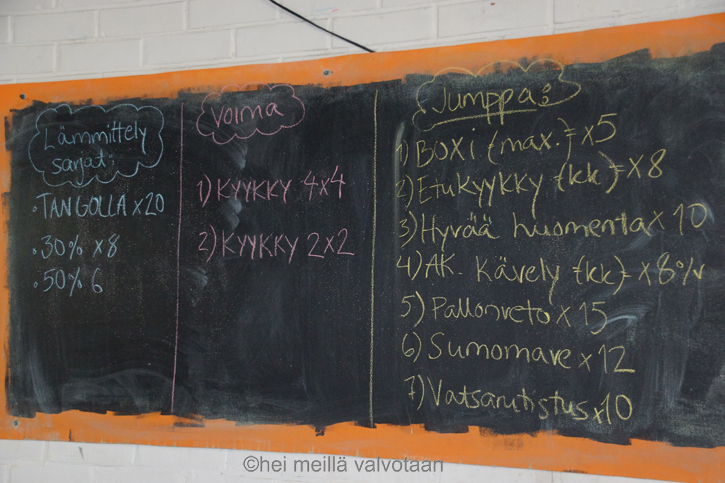 Lämmittely
sarjat:
• TANGOLLA x 20
• 30% x 8
• 50% 6
Voima
1) KYYKKY 4x4
2) KYYKKY 2x2
Jumppa:
1) BOXi (max.) x5
2) Etukyykky (kk) x8
3) Hyvää huomenta x 10
4) AK. Kävely (kk) x8
5) Pallonveto x 15
6) Sumomave x 12
7) Vatsarutistus x 10
©hei meillä valvotaan